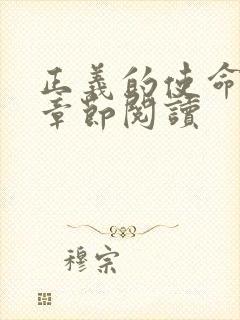 正義的使命
章節閱讀
穆宗